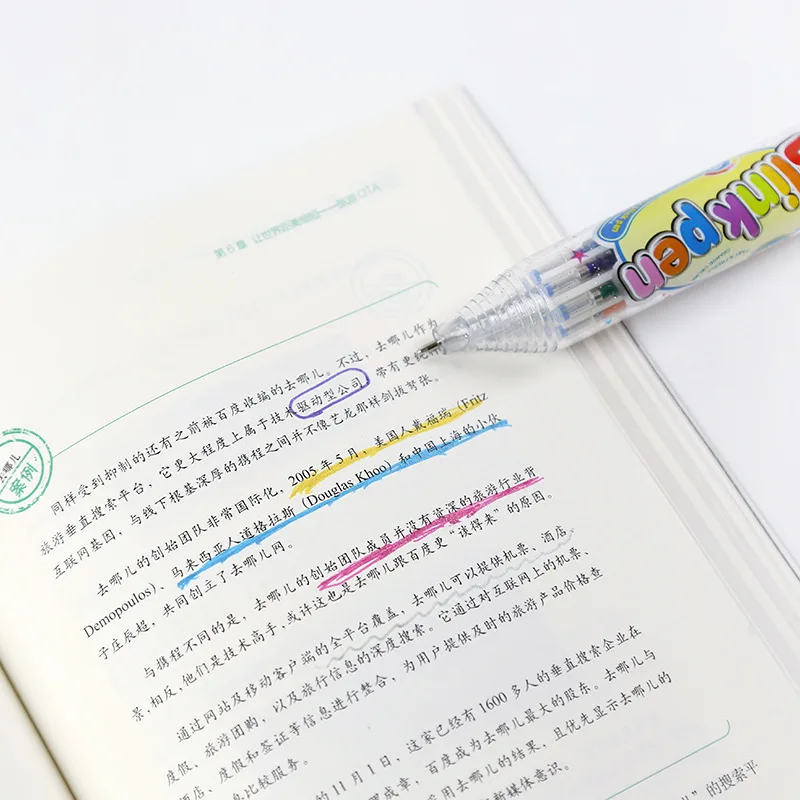 同样受到抑制的还有之前被百度收编的去哪儿。不过，去哪儿作为
旅游垂直搜索平台，它更大程度上属于技术驱动型公司，带有更纯
互联网基因，与线下根基深厚的携程之间并不像艺龙那样剑拔弩张。
去哪儿
案例
去哪儿的创始团队非常国际化，2005 年 5 月，美国人戴福瑞（Fritz
Demopoulos）、马来西亚人道格拉斯（Douglas Khoo）和中国上海的小伙
子庄辰超，共同创立了去哪儿网。
与携程不同的是，去哪儿的创始团队成员并没有资深的旅游行业背
景,相反,他们是技术高手,或许这也是去哪儿跟百度更“谈得来”的原因。
通过网站及移动客户端的全平台覆盖，去哪儿可以提供机票、酒店、
度假、旅游团购，以及旅行信息的深度搜索。它通过对互联网上的机票、
酒店、度假和签证等信息进行整合，为用户提供及时的旅游产品价格查
息比较服务。
的 11 月 1 日，这家已经有 1600 多人的垂直搜索企业在
理成章，百度成为去哪儿最大的股东。去哪儿与
用去哪儿的结果，且优先显示去哪儿的
新媒体意识。
”的搜索平
link pen